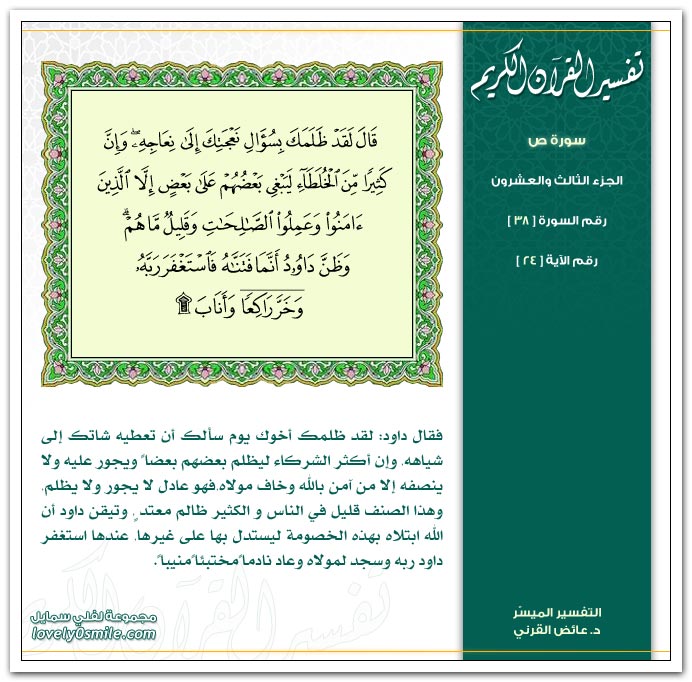 تفسير القرآن الكريم
سورة ص
الجزء الثالث والعشرون
رقم السورة [ ٣٨ ]
رقم الآية [ ٢٤ ]
قَالَ لَقَدْ ظَلَمَكَ بِسُؤَالِ نَعْجَتِكَ إِلَىٰ نِعَاجِهِۦۖ وَإِنَّ
كَثِيرًا مِّنَ ٱلْخُلَطَآءِ لَيَبْغِى بَعْضُهُمْ عَلَىٰ بَعْضٍ إِلَّا ٱلَّذِينَ
ءَامَنُوا۟ وَعَمِلُوا۟ ٱلصَّـٰلِحَـٰتِ وَقَلِيلٌ مَّا هُمْۗ
وَظَنَّ دَاوُۥدُ أَنَّمَا فَتَنَّـٰهُ فَٱسْتَغْفَرَ رَبَّهُۥ
وَخَرَّ رَاكِعًا وَأَنَابَ ۩
فقال داود: لقد ظلمك أخوك يوم سألك أن تعطيه شاتك إلى
شياهه. وإن أكثر الشركاء ليظلم بعضهم بعضاً ويجور عليه ولا
ينصفه إلا من آمن بالله وخاف مولاه.فهو عادل لا يجور ولا يظلم.
وهذا الصنف قليل في الناس و الكثير ظالم معتدٍ. وتيقن داود أن
الله ابتلاه بهذه الخصومة ليستدل بها على غيرها. عندها استغفر
داود ربه وسجد لمولاه وعاد نادماً مختبئاً منيباً.
التفسير الميسّر
د. عائض القرني
مجموعة لفلي سمايل
lovely0smile.com
تفسير القرآن الكريم